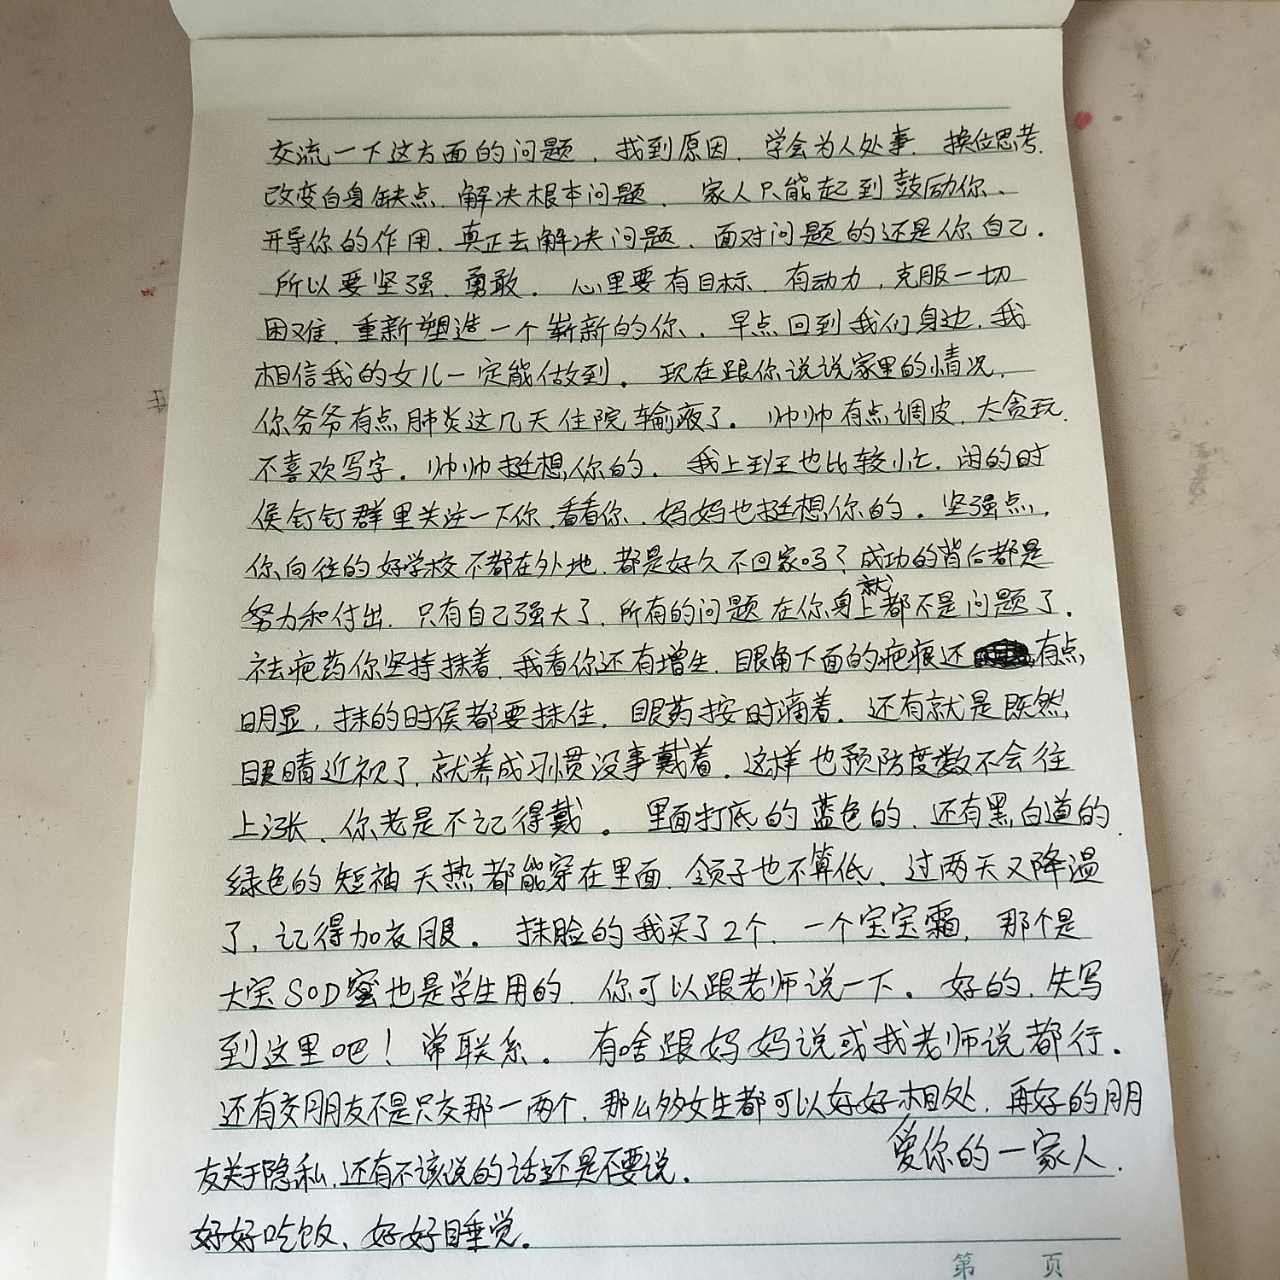 交流一下这方面的问题、找到原因、学会为人处事、换位思考、
改变自身缺点、解决根本问题、家人只能起到鼓励你、
开导你的作用、真正去解决问题、面对问题的还是你自己。
所以要坚强、勇敢。心里要有目标、有动力、克服一切
困难、重新塑造一个崭新的你、早点回到我们身边、我
相信我的女儿一定能做到。现在跟你说说家里的情况、
你爷爷有点肺炎这几天住院输液了。帅帅有点调皮、太贪玩、
不喜欢写字。帅帅挺想你的、我上班也比较忙、闲的时
侯钉钉群里关注一下你、看看你、妈妈也挺想你的。坚强点、
你向往的好学校不都在外地、都是好久不回家吗？成功的背后都是
努力和付出、只有自己强大了、所有的问题在你身上就都不是问题了。
祛疤药你坚持抹着、我看你还有增生、眼角下面的疤痕还有点
明显、抹的时侯都要抹住、眼药按时滴着、还有就是既然
眼睛近视了、就养成习惯没事戴着、这样也预防度数不会往
上涨、你老是不记得戴。里面打底的蓝色的、还有黑白道的、
绿色的短袖天热都能穿在里面、领子也不算低、过两天又降温
了、记得加衣服。抹脸的我买了2个、一个宝宝霜、那个是
大宝SOD蜜也是学生用的、你可以跟老师说一下。好的、先写
到这里吧！常联系。有啥跟妈妈说或我老师说都行。
还有交朋友不是只交那一两个、那么多女生都可以好好相处、再好的朋
友关于隐私、还有不该说的话还是不要说。
爱你的一家人、
好好吃饭、好好睡觉。
第 页